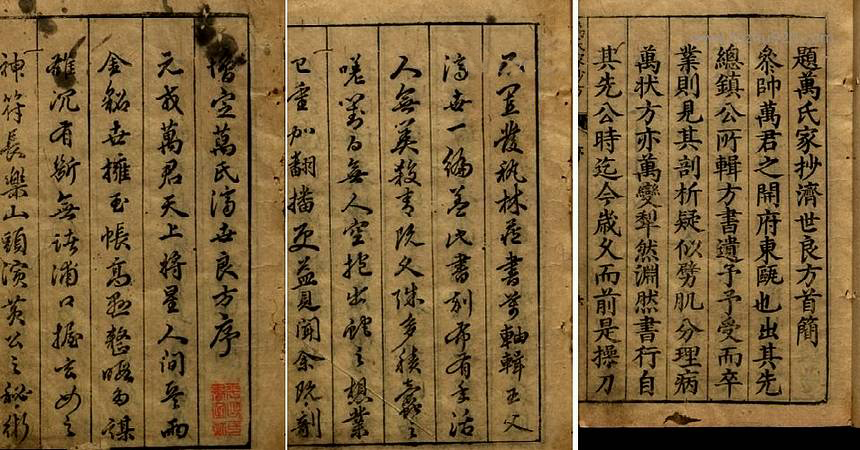 增定萬氏濟世良方序
元戎萬君天上將星人間雨
金貂世擁玉帳高懸整暇為謀
沉有斷無諸浦口握玄女之
神符長樂山頭演黃公之秘術
不置發秘林書萬軸輯王父
濟世一編蓋此書刻布有年活
人無美殺青既久殊多積蠹之
嗟對白無人空抱出之懼業
已重加翻播更益見聞余既剞
題萬氏家抄濟世良方首簡
叅帥萬君之開府東甌也出其先
總鎮公所輯方書遺予予受而卒
業則見其剖析疑似劈肌分理病
萬狀方亦萬變犁然淵然書行自
其先公時迄今歲久而前是操刀